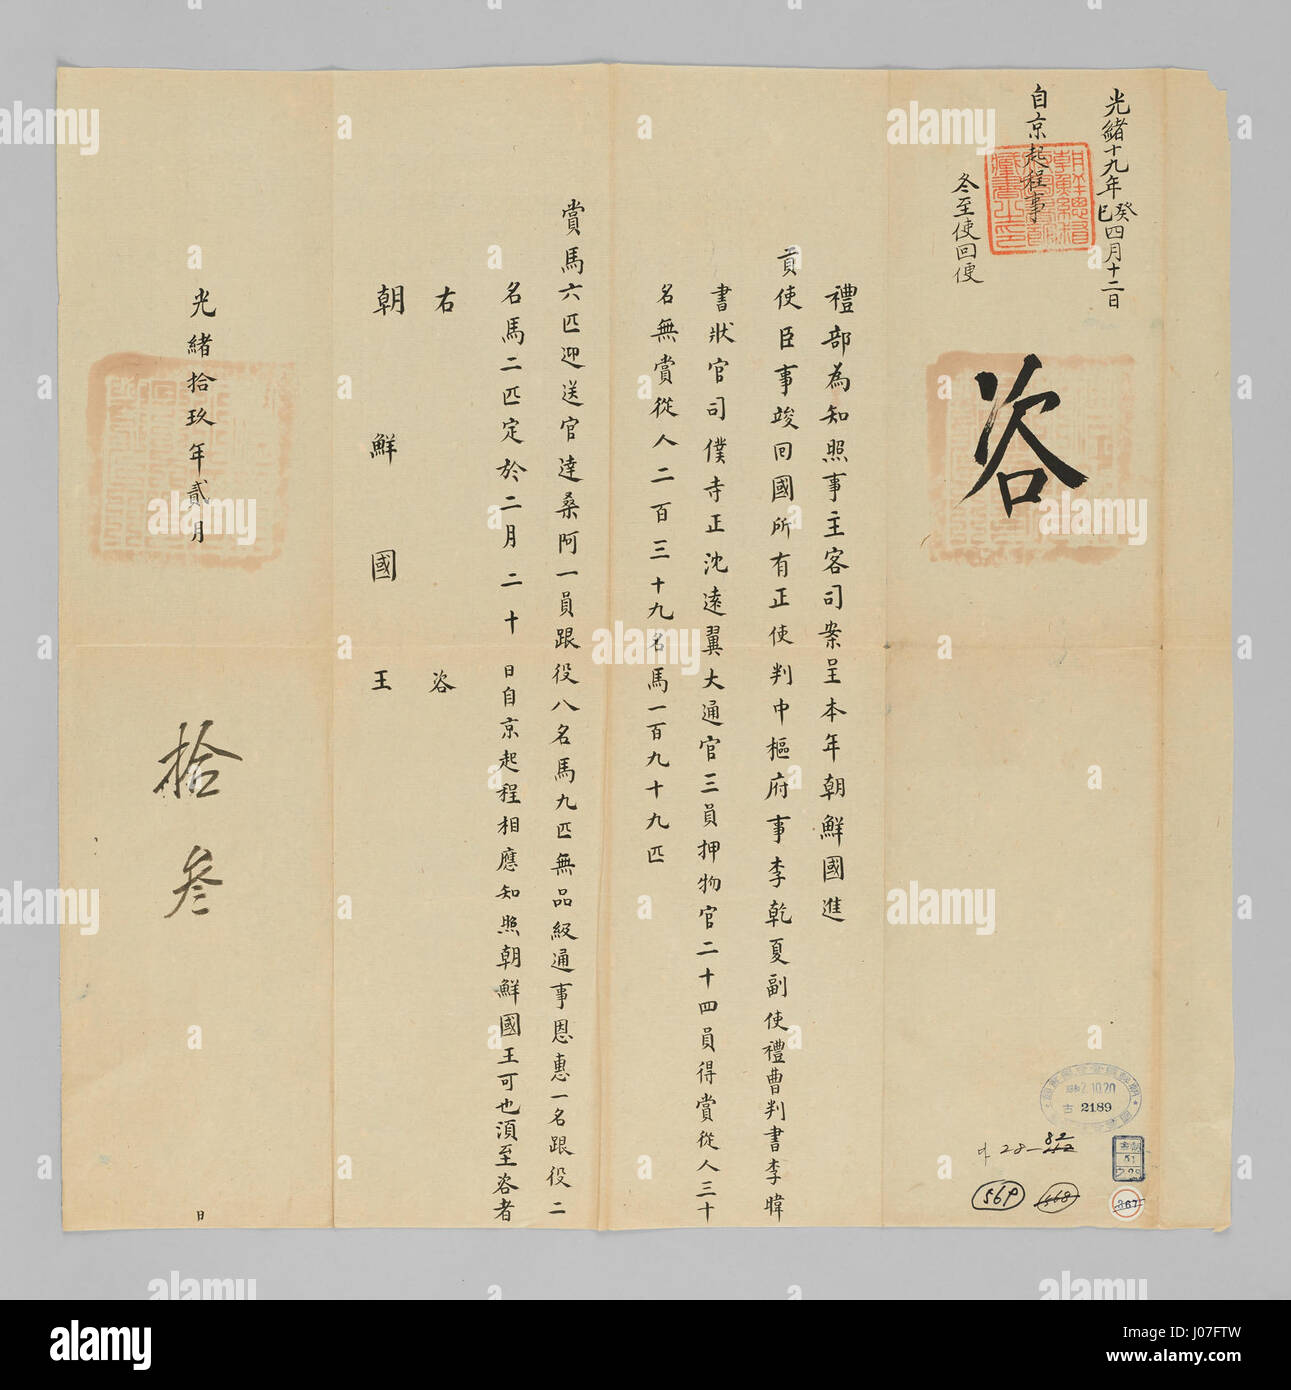 光緒十九年癸巳四月十二日
自京起程事
冬至使回便
咨
禮部為知照事主客司案呈本年朝鮮國進
貢使臣事竣回國所有正使判中樞府事李乾夏副使禮曹判書李暐
書狀官司僕寺正沈遠翼大通官三員押物官二十四員得賞從人三十
名無賞從人二百三十九名馬一百九十九匹
賞馬六匹迎送官達桑阿一員跟役八名馬九匹無品級通事恩惠一名跟役二
名馬二匹定於二月二十日自京起程相應知照朝鮮國王可也須至咨者
右咨
朝鮮國王
光緒拾玖年貳月
拾叁
日
2.10.20
古 2189
28-
82
569
568
367
alamy
Image ID: J07FTW
www.alamy.com